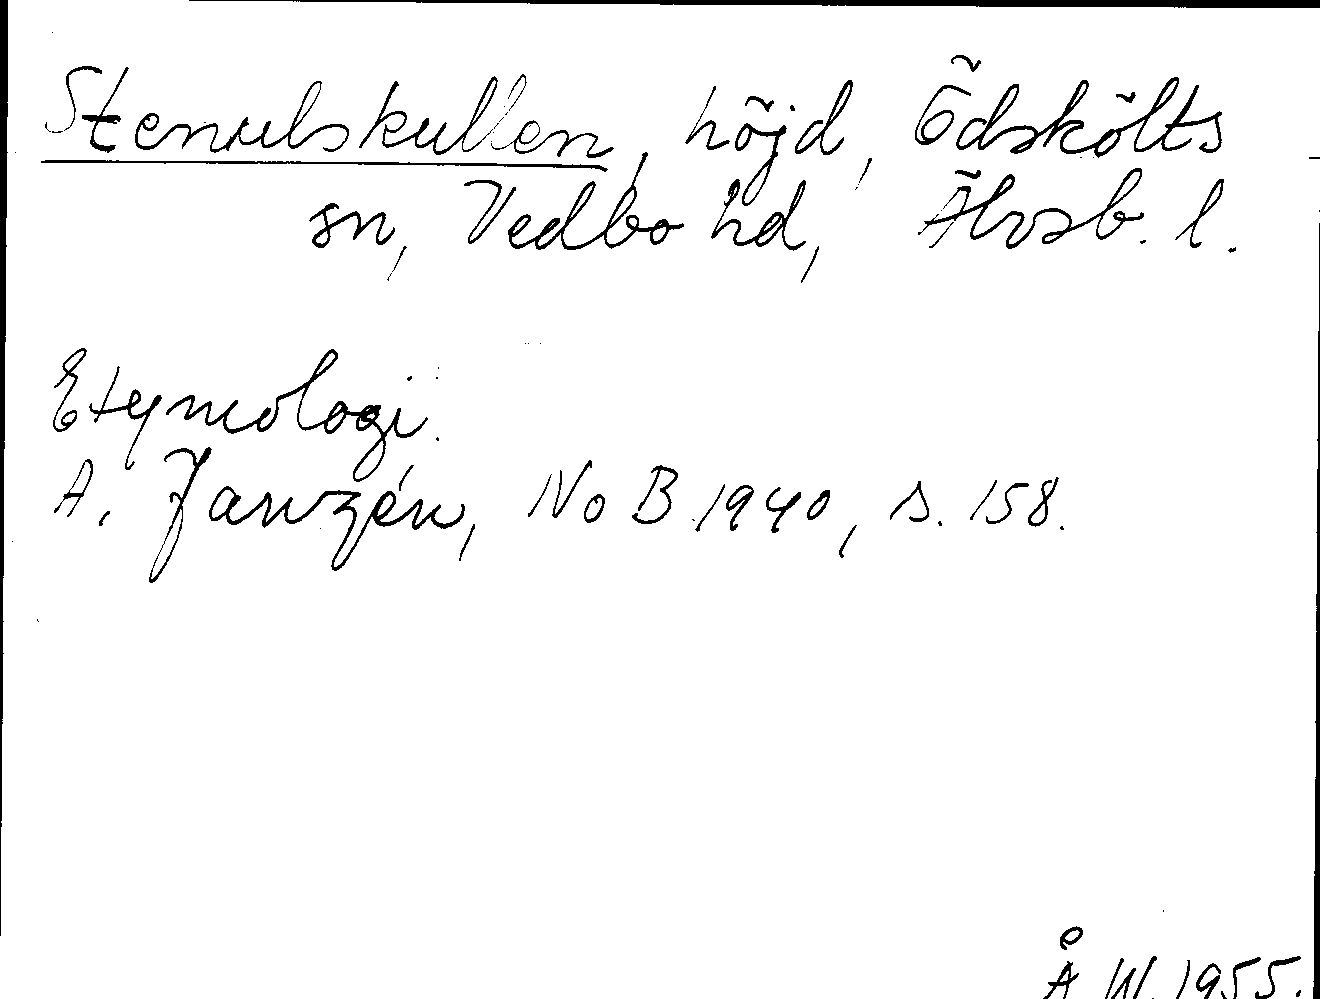 Stenulskullen, höjd, Ödskölts
sn, Vedbo hd, Älvsb. l.
Etymologi.
A. Janzén, NoB 1940, s. 158.
Å W. 1955.